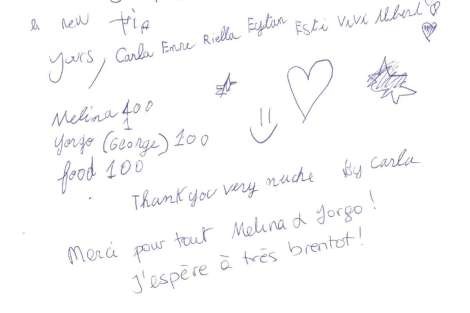 a new trip
yours, Carla Enre Riella Eytan Esti ViVi Albert
Melina 100
Yorgo (George) 100
food 100
Thank you very muche By Carla
Merci pour tout Melina & Yorgo!
J'espère à très brentot!